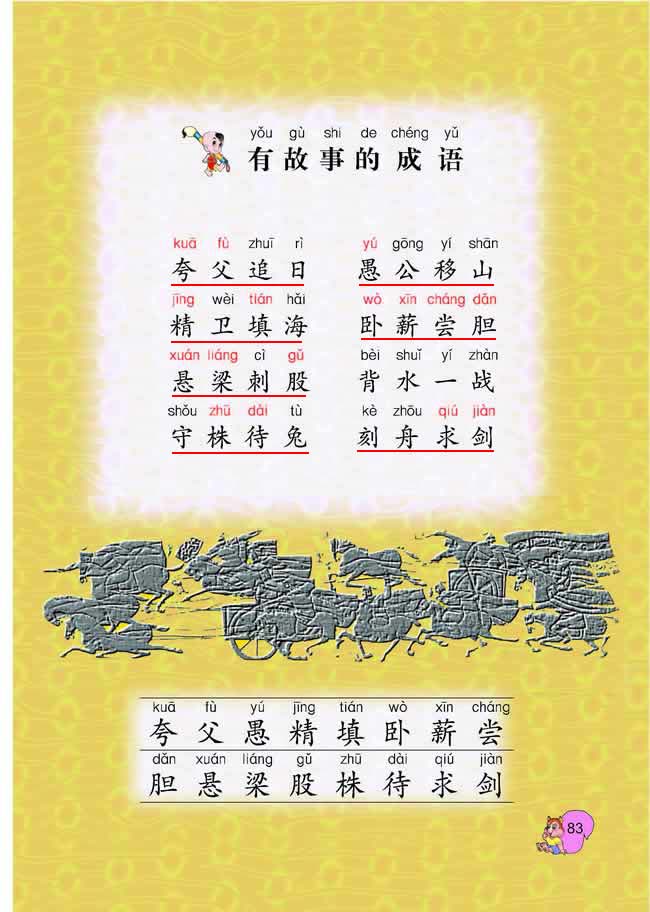 yǒu gù shi de chéng yǔ
有故事的成语
kuā fù zhuī rì yú gōng yí shān
夸父追日 愚公移山
jīng wèi tián hǎi wò xīn cháng dǎn
精卫填海 卧薪尝胆
xuán liáng cì gǔ bèi shuǐ yí zhàn
悬梁刺股 背水一战
shǒu zhū dài tù kè zhōu qiú jiàn
守株待兔 刻舟求剑
kuā fù yú jīng tián wò xīn cháng
夸父愚精填卧薪尝
dǎn xuán liáng gǔ zhū dài qiú jiàn
胆悬梁股株待求剑
83